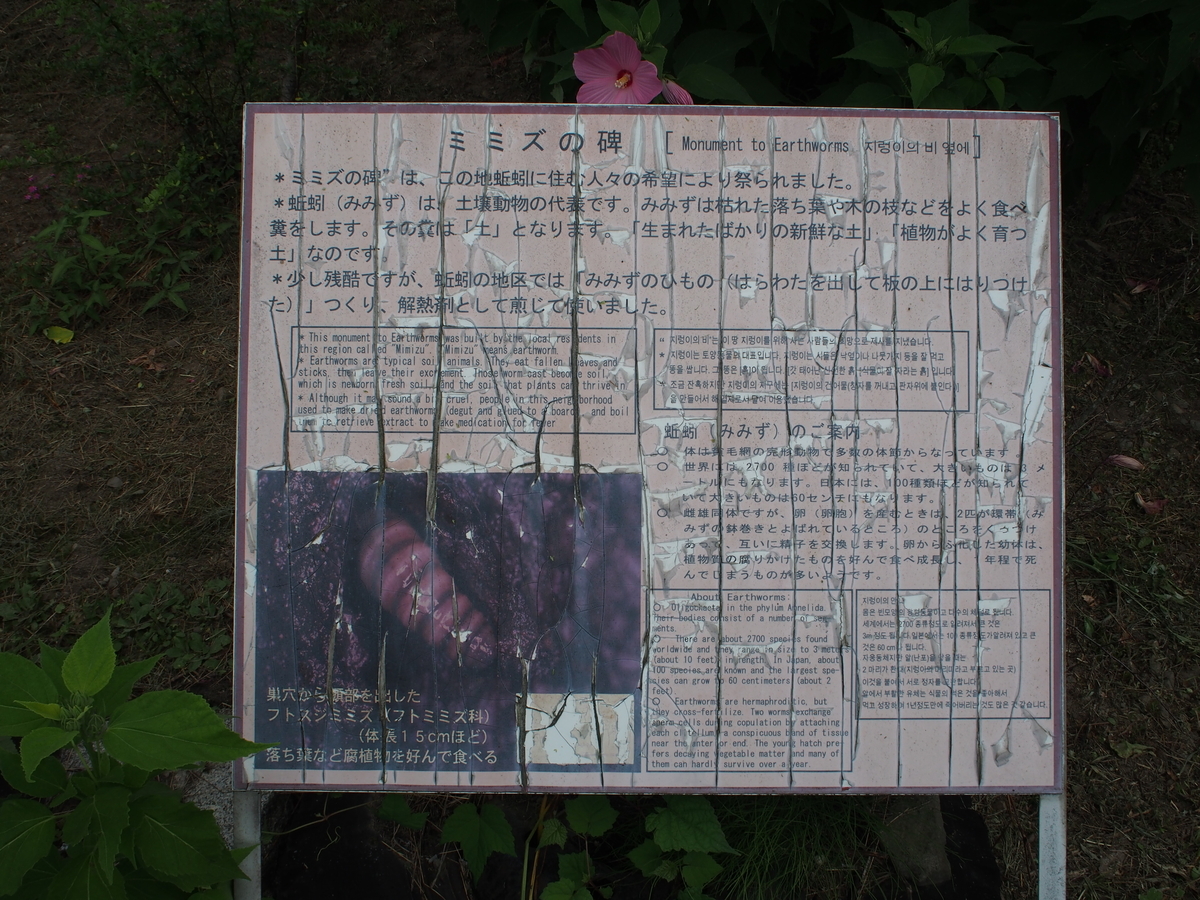 ミミズの碑 [ Monument to Earthworms 지렁이의 비 옆에 ]
＊ミミズの碑”は、この地蚯蚓に住む人々の希望により祭られました。
＊蚯蚓（みみず）は、土壌動物の代表です。みみずは枯れた落ち葉や木の枝などをよく食べ
糞をします。その糞は「土」となります。「生まれたばかりの新鮮な土」、「植物がよく育つ
土」なのです
＊少し残酷ですが、蚯蚓の地区では「みみずのひもの（はらわたを出して板の上にはりつけ
た）」つくり、解熱剤として煎じて使いました。
* This monument to Earthworms was built by the local residents in
this region called "Mimizu". "Mimizu" means earthworm.
* Earthworms are typical soil animals. They eat fallen leaves and
sticks, the leave their excrement. Those worm cast become soil
which is newborn fresh soil and the soil that plants can thrive in
* Although it may sound a bit cruel, people in this neighborhood
used to make dried earthworms (degut and glued to a board) and boil
them to retrieve extract to make medication for fever
지렁이의 비"는 이 땅 지렁이를 위해 사는 사람들의 희망으로 제사를 지냈습니다.
* 지렁이는 토양동물의 대표입니다. 지렁이는 시들은 낙엽이나 나뭇가지 등을 잘 먹고
똥을 쌉니다. 그 똥은 흙이 됩니다.
* 조금 잔혹하지만 지렁이의 지구에는 [지렁이의 건어물(창자를 꺼내고 판자위에 붙인다)]
을 만들어서 해열제로서 달여 이용했습니다.
蚯蚓（みみず）のご案内
○ 体は貧毛網の完形動物で多数の体節からなっています
○ 世界には 2700 種ほどが知られていて、大きいものは 3 メ
ートルにもなります。日本には、100種類ほどが知られて
いて大きいものは60センチにもなります。
○ 雌雄同体ですが、卵（卵胞）を産むときは、2匹が環帯（み
みずの鉢巻きとよばれているところ）のところをくっつけ
あって、互いに精子を交換します。卵からふ化した幼体は、
植物質の腐りかけたものを好んで食べ成長し、 年程で死
んでしまうものが多いようです。
About Earthworms:
○ Oligochaeta in the phylum Annelida.
Their bodies consist of a number of seg-
ments.
○ There are about 2700 species found
worldwide and they range in size to 3 mete
(about 10 feet) in length. In Japan, about
100 species are known and the largest spe-
cies can grow to 60 centimeters (about 2
feet).
○ Earthworms are hermaphroditic, but
they cross-fertilize. Two worms exchange
sperm cells during copulation by attaching
each clitellum, a conspicuous band of tissue
near the anterior end. The young hatch pre-
fers decaying vegetable matter and many of
them can hardly survive over a year.
지렁이의 안
몸은 빈모망의 환형동물이고 다수의 체절로 됩니다.
세계에서는 2700 종류정도로 알려져서 큰 것은
3m 정도 됩니다. 일본에서는 100 종류정도가 알려져 있고 큰
것은 60 cm가 됩니다.
자웅동체지만 알(난포)을 낳을 때는
2 마리가 환대(지렁이의 머리띠라고 부르고 있는 곳)
이것을 붙여서 서로 정자를 교환합니다.
알에서 부활한 유체는 식물의 썩은 것을 좋아해서
먹고 성장하여 1년정도만에 죽어버리는 것도 많은 것 같습니다.
巣穴から頭部を出した
フトスジミミズ（フトミミズ科）
（体長１５ｃｍほど）
落ち葉など腐植物を好んで食べる